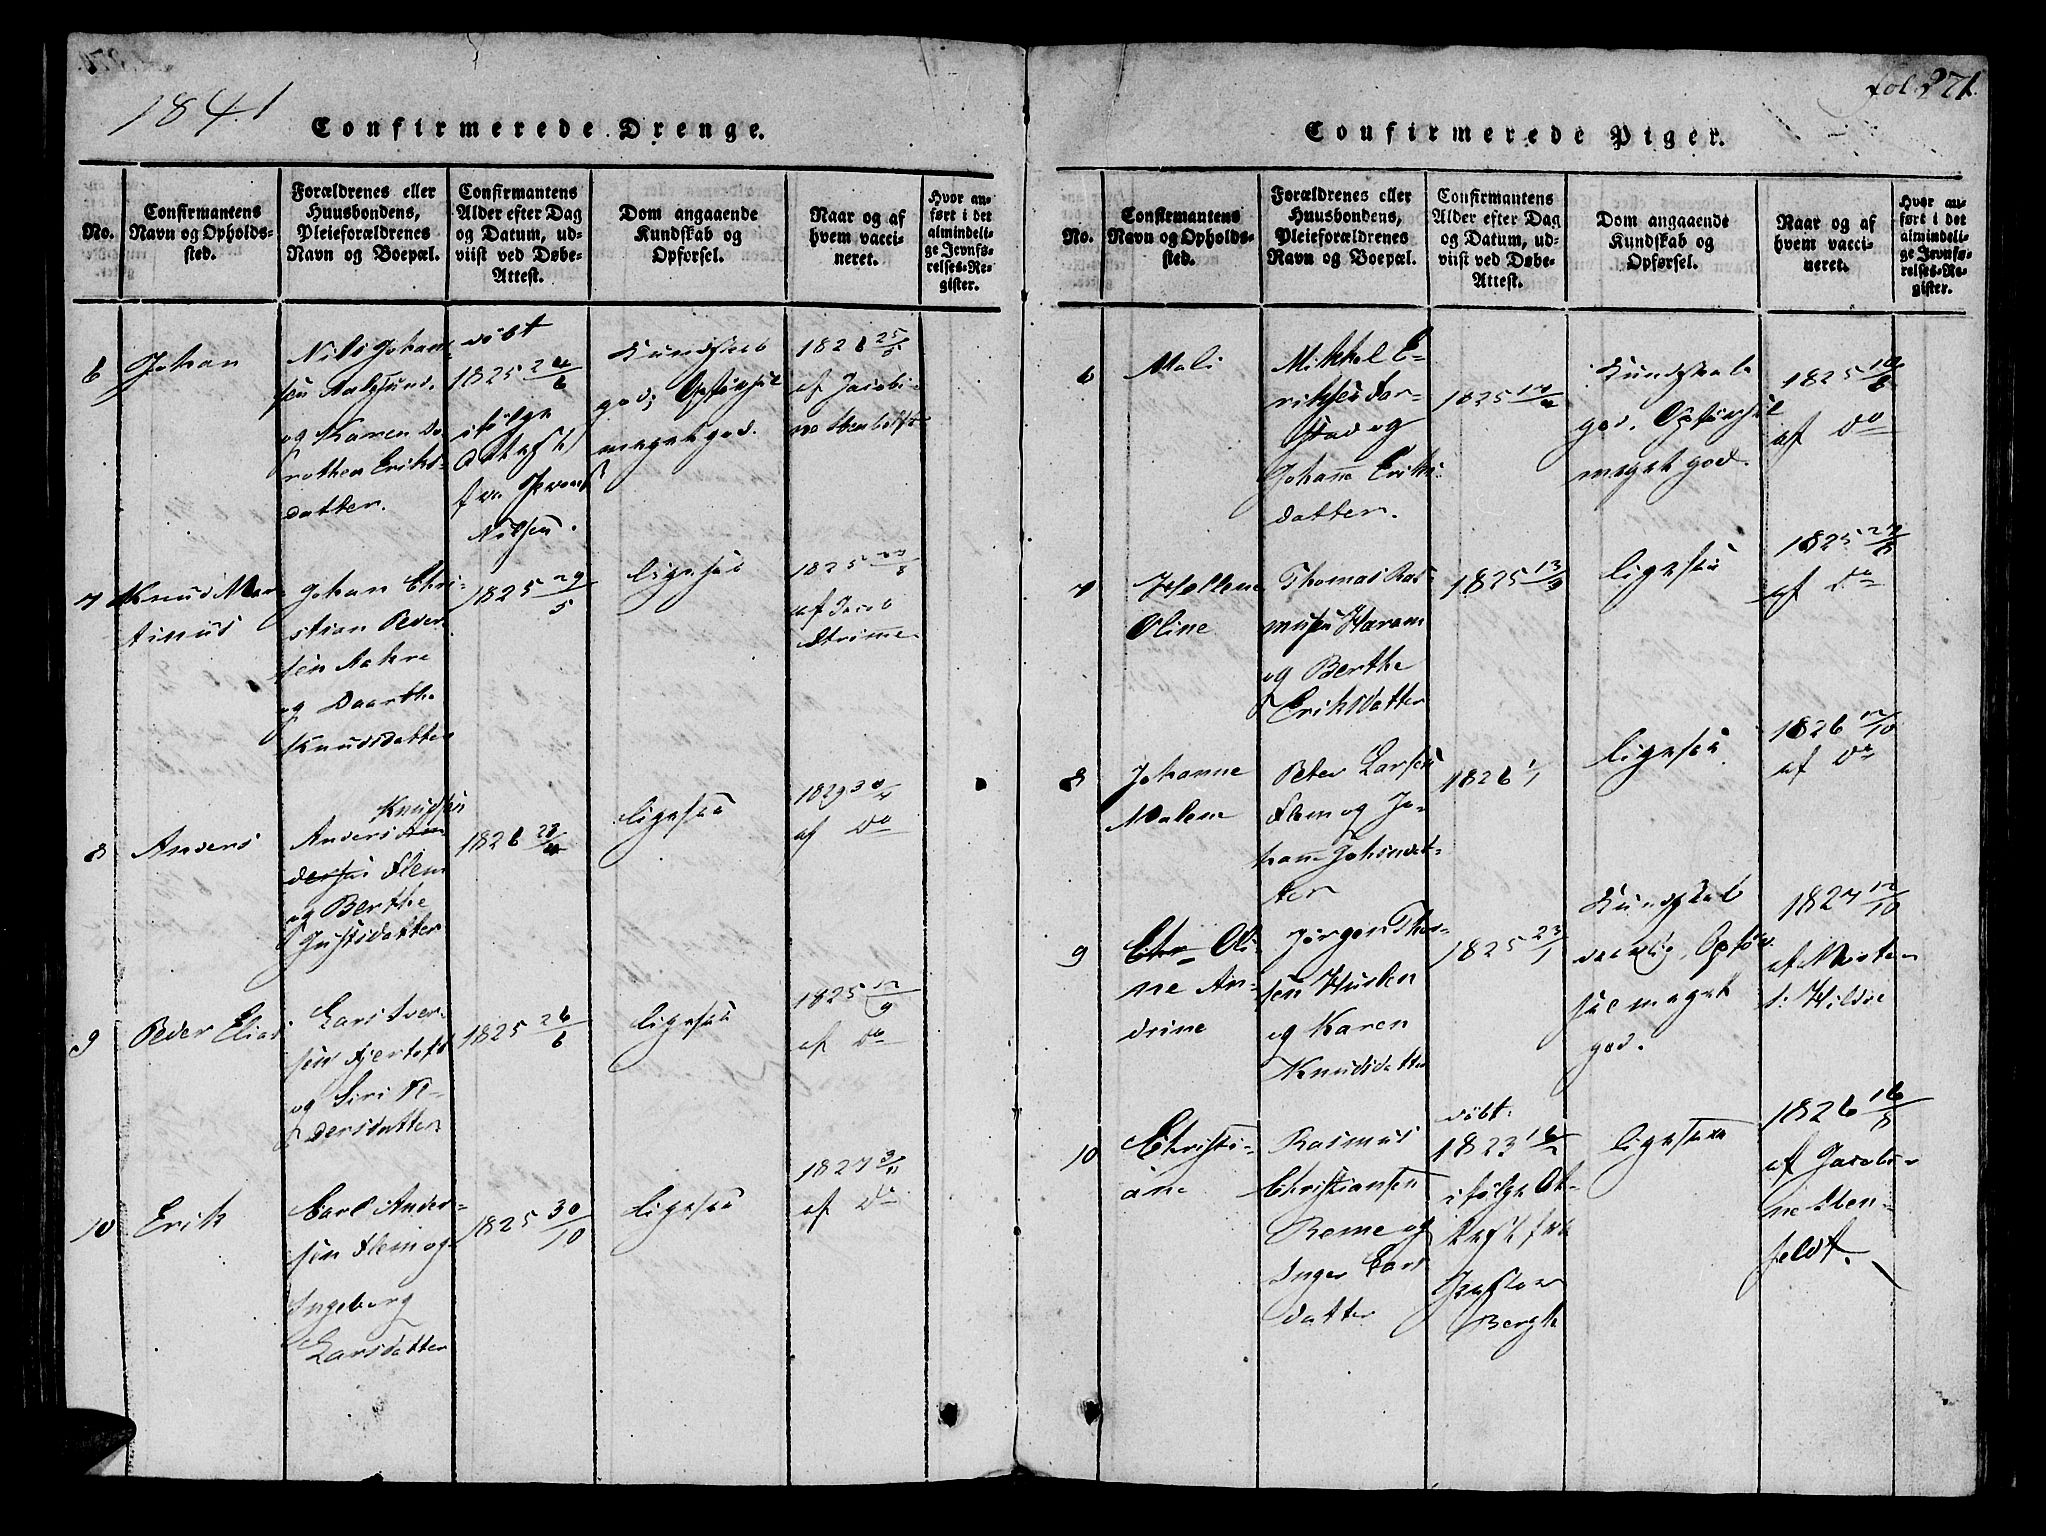 1841
Confirmerede Drenge.
No.
Confirmantens
Navn og Opholds-
sted.
Forældrenes eller
Huusbondens,
Pleieforældrenes
Navn og Boepæl.
Confirmantens
Alder efter Dag
og Datum, ud-
viist ved Døbe-
Attest.
Dom angaaende
Kundskab og
Opførsel.
Naar og af
hvem vacci-
neret.
Hvor an-
ført i det
almindeli-
ge Jevnfø-
relses-Re-
gister.
6
Johan
Nils Johan-
sen
og Karen Do-
rothea Eriks-
datter.
døbt
1825 26/6
ifølge
Attest
fra
Nilsen.
Kundskab
god, Opførsel
meget god.
1826 25/5
af Jacobi-
ne
7
Knud Mar-
tinus
Johan Chri-
stian Peder
sen Aakre
og Daarthe
Knudsdatter
1825 29/5
ligesaa
1825
af Jacob
Strømme
8
Anders
Knudsen
Anders An
dersen Flem
og Berthe
Justsdatter
1826
ligesaa
1829 30/4
af Do
9
Peder Elias
Lars Iver-
sen Fjertoft
og Siri A-
dersdatter
1825 26/6
ligesaa
1825 12/9
af Do
10
Erik
Carl Ander-
sen Flem og
Ingeborg
Larsdatter
1825 30/10
ligesaa
1827 3/11
af Do
fol. 271.
Confirmerede Piger.
No.
Confirmantens
Navn og Opholds-
sted.
Forældrenes eller
Huusbondens,
Pleieforældrenes
Navn og Boepæl.
Confirmantens
Alder efter Dag
og Datum, ud-
viist ved Døbe-
Attest.
Dom angaaende
Kundskab og
Opførsel.
Naar og af
hvem vacci-
neret.
Hvor an-
ført i det
almindeli-
ge Jevnfø-
relses-Re-
gister.
6
Mali
Mikkel E-
riksen Far-
stad og
Johanne Eriks-
datter.
1825
Kundskab
god, Opførsel
meget god.
1825
af Do
7
Hellene
Oline
Thomas Ras-
musen Haram
og Berthe
Eriksdatter
1825 13/9
ligesaa
1825
af Do
8
Johanne
Malene
Peter Larsen
Flem og Jo-
hanne Johnsdat-
ter
1826 1/1
ligesaa
1826 17/10
af Do
9
Oli-
ne An-
drine
Jørgen Thor-
sen Husben
og Karen
Knudsdatter
1825 23/1
Kundskab
maadelig, Opfør-
sel meget
god.
1827 12/10
af Morten
S. Hildre
10
Christi-
ane
Rasmus
Christiansen
Reme og
Inger Lars
datter
døbt
1823
ifølge At-
test fra
Bergh
ligesaa
1826 16/8
af Jacobi-
ne Iben-
feldt.